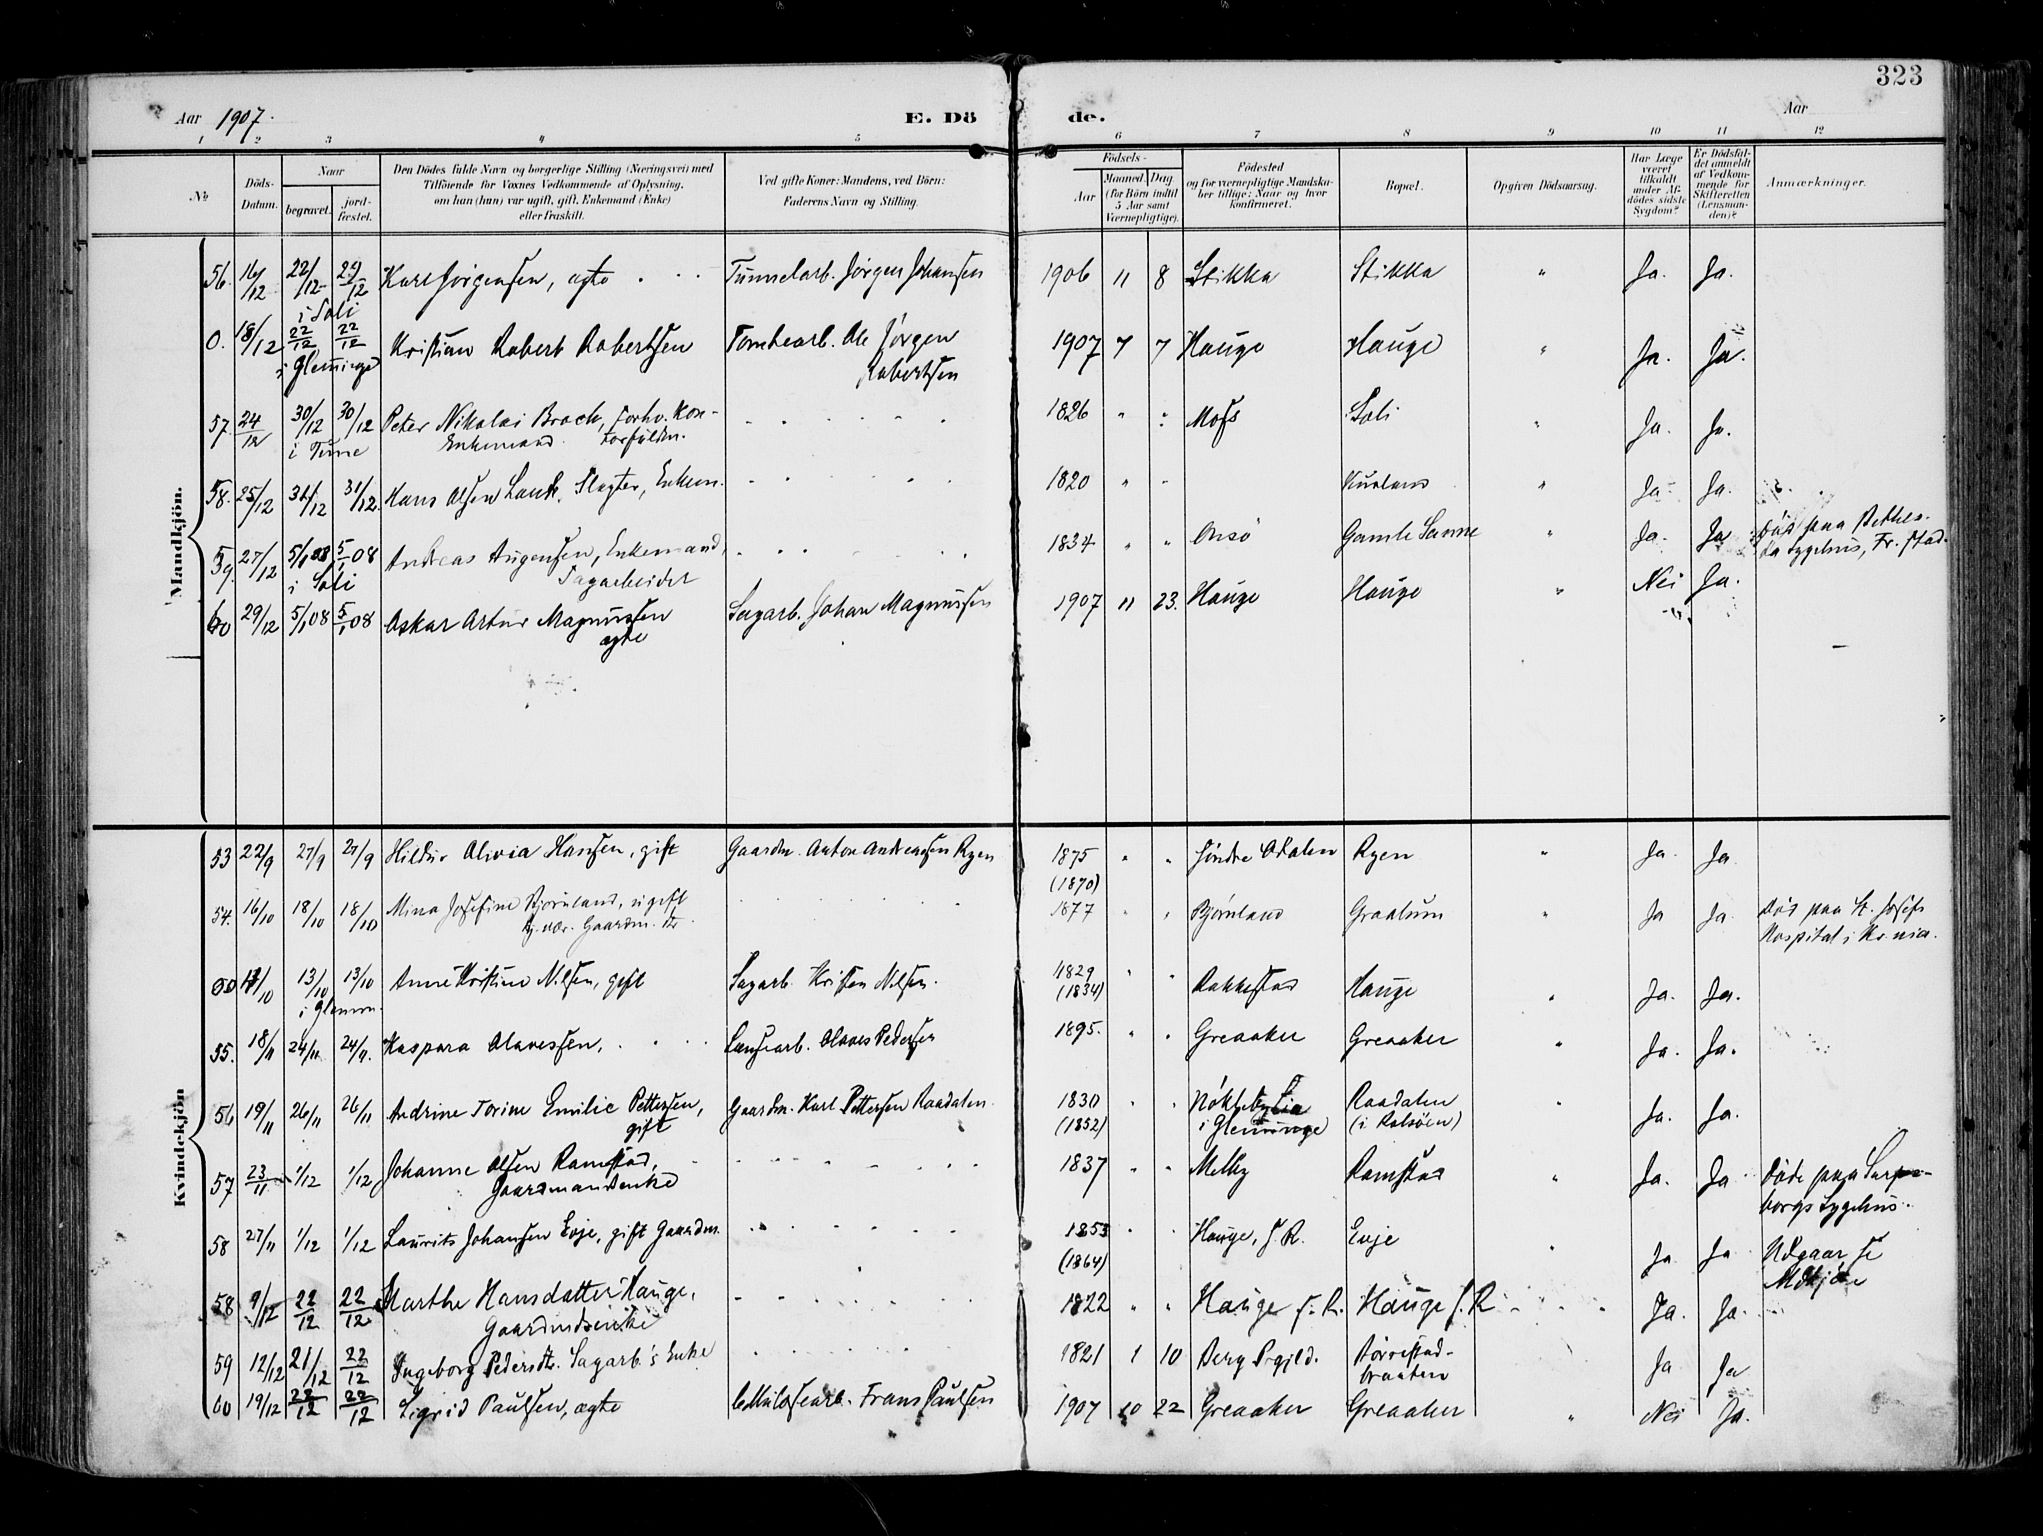 323
Aar 1907. E. Dö de. Aar
1 2 3 4 5 6 7 8 9 10 11 12
No
Döds-Datum.
Naar
begravet.
jordfæstet.
Den Dödes fulde Navn og borgerlige Stilling (Næringsvei) med
Tilföiende for Voxnes Vedkommende af Oplysning,
om han (hun) var ugift, gift, Enkemand (Enke)
eller fraskilt.
Ved gifte Koner: Mandens, ved Börn:
Faderens Navn og Stilling.
Födsels-
Aar
Maaned. Dag
(for Börn indtil
5 Aar samt
Værnepligtige).
Födested
og for værnepligtige Mandska-
ber tillige: Naar og hvor
konfirmeret.
Bopæl.
Opgiven Dödsaarsag.
Har Læge
været
tilkaldt
under Af-
dödes sidste
Sygdom?
Er Dödsfal-
det anmeldt
af Vedkom-
mende for
Skifteretten
(Lensman-
den)?
Anmærkninger.
Mandkjön.
56. 16/12 22/12 29/12 Karl Jørgensen, ægte Tunnelarb. Jørgen Johansen 1906 11 8 Stikka Stikka " Ja. Ja.
i Soli
0. 18/12 22/12 22/12 Kristian Robert Robertsen Tomtearb. Ole Jørgen 1907 7 7 Hauge Hauge " Ja. Ja.
i Gleminge Robertsen
57. 24/12 30/12 30/12 Peter Nikolai Brock, forhv. Kon- 1826 " " Moss Soli " Ja. Ja.
i Tune Enkemand torfuldm.
58. 25/12 31/12 31/12. Hans Olsen Lank, Slagter, Enkem. 1820 " " Kurland " Ja. Ja.
59. 27/12 5/1 08 5/1 08 Andreas Augensen, Enkemand, 1834 " " Onsö Gamle Sanne " Ja. Ja Död paa Bethes-
i Soli Sagarbeider da Sygehus, Fr.stad.
60 29/12 5/1 08 5/1 08 Oskar Artur Magnussen Sagarb. Johan Magnussen 1907 11 23. Hauge Hauge " Nei Ja.
ægte
Kvindekjön
53 22/9 27/9 27/9 Hildur Olivia Hansen, gift Gaardm. Anton Andreassen Ryen 1875 " " Søndre Odalen Ryen " Ja. Ja
(1870)
54. 16/10 18/10 18/10 Mina Josefine Bjørnland, ugift 1877 " " Bjørnland Graalum " Ja Ja. Död paa St. Josefs
Gaardm. Dtr. Hospital i Kr.nia.
13/10 13/10 Anne Kristine Nilsen, gift Sagarb. Kristen Nilsen. 1829 " " Rakkestad Hauge " Ja. Ja.
i Glemm. (1834)
55. 18/11 24/11 24/11. Kaspara Olavesen, Lensearb. Olaves Pedersen 1895. " " Greaaker Greaaker " Ja. Ja.
56 19/11 26/11 26/11 Andrine Torine Emilie Pettersen, Gaardm. Karl Pettersen Raadalen. 1830 " " Nökleby Lia Raadalen " Ja. Ja.
gift (1852) i Glemminge (i Rolsøen)
57 23/11 1/12 1/12 Johanne Olsen Ramstad, 1837 " " Melby Ramstad " Ja. Ja Döde paa Sarps-
Gaardmandsenke borgs Sygehus.
58 27/11 1/12 1/12 Laurits Johansen Evje, gift Gaardm. 1853 " " Hauge, f. R. Evje " Ja Ja Udgaar se
(1864) Mdkjön
58 9/12 22/12 22/12 Marthe Hansdatter Hauge, 1822 " " Hauge f. R. Hauge f. R Ja. Ja.
Gaardmdsenke
59 12/12 21/12 22/12 Ingeborg Pedersdtr. Sagarb's Enke 1821 1 10 Berg Prgjld. Borrestad- Ja Ja
braaten
60 19/12 22/12 22/12 Sigrid Paulsen, ægte Cellulosearb. Frans Paulsen 1907 10 22 Greaaker Greaaker " Nei Ja.